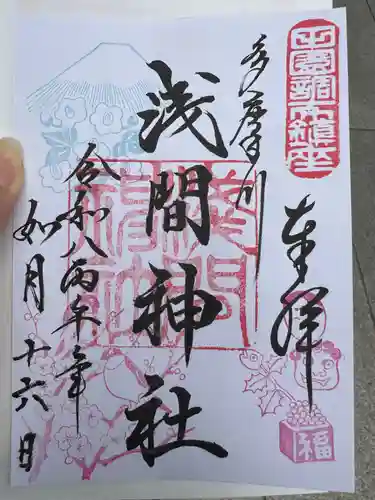 田園調布鎮座
奉拝
多摩川
浅間神社
令和八丙午年
如月十六日
福